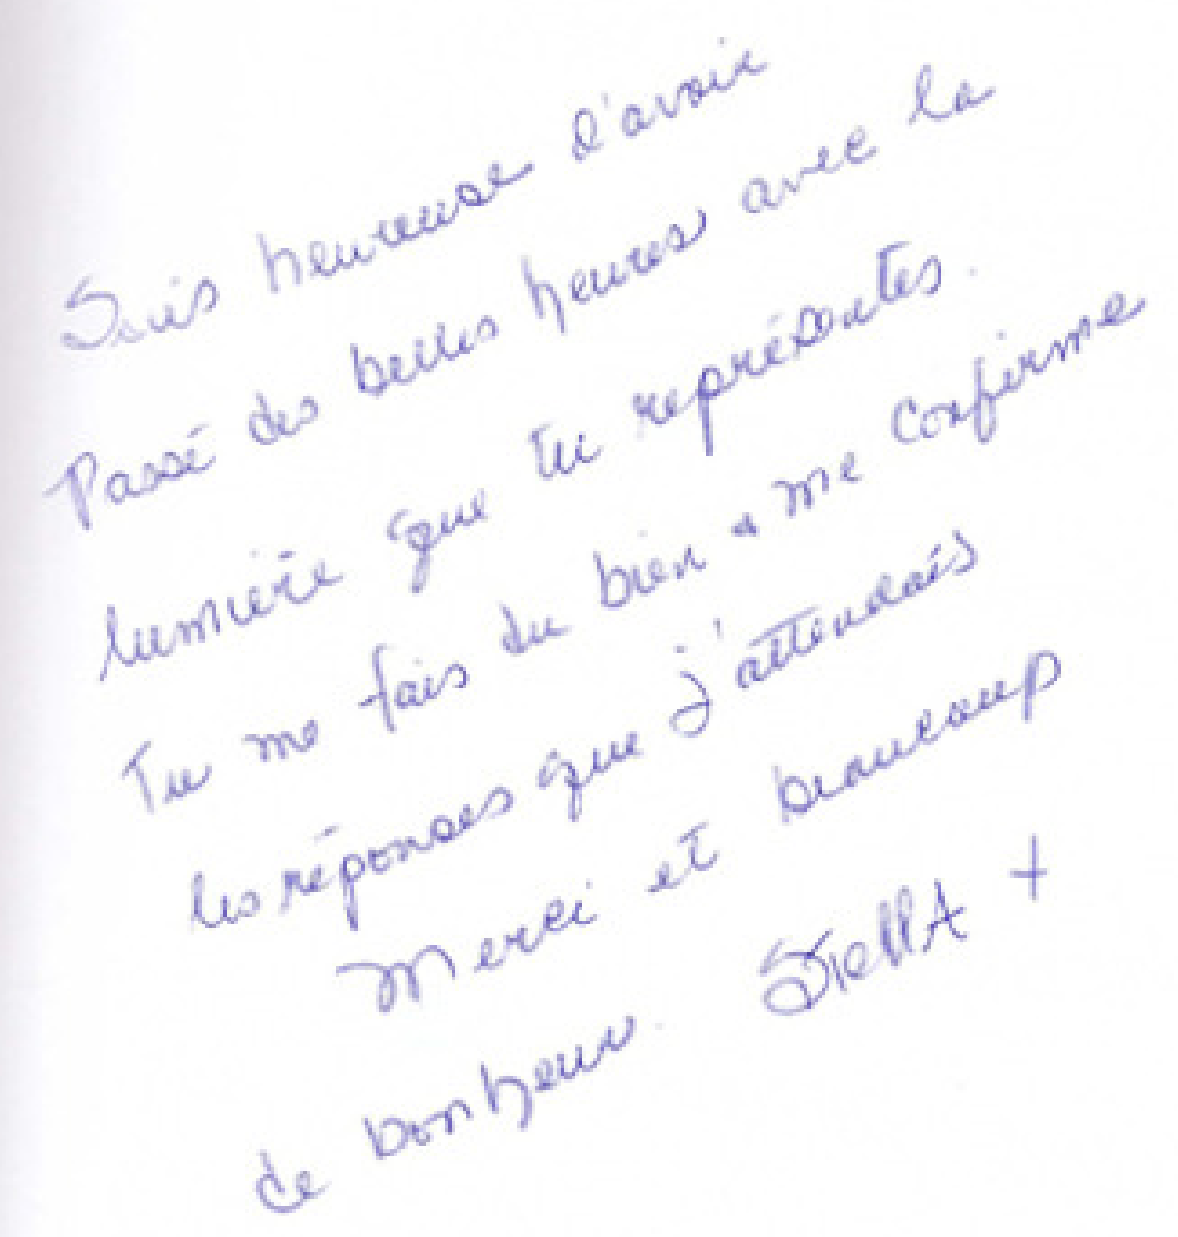 Suis heureuse d'avoir
Passé des belles heures avec la
lumière que tu représentes.
Tu me fais du bien & me confirme
les réponses que j'attendais
Merci et beaucoup
de bonheur. StellA +